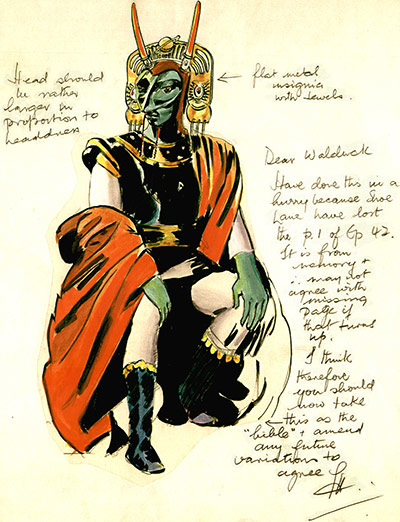 Head should
be rather
larger in
proportion to
headdress
← flat metal
insignia
with jewels.
Dear Walduck
Have done this in a
hurry because Shoe
Lane have lost
the p.1 of Ep 42.
It is from
memory +
may not
agree with
missing
page if
that turns
up.
I think
therefore
you should
now take
← this as the
"bible" + amend
any future
variations to
agree